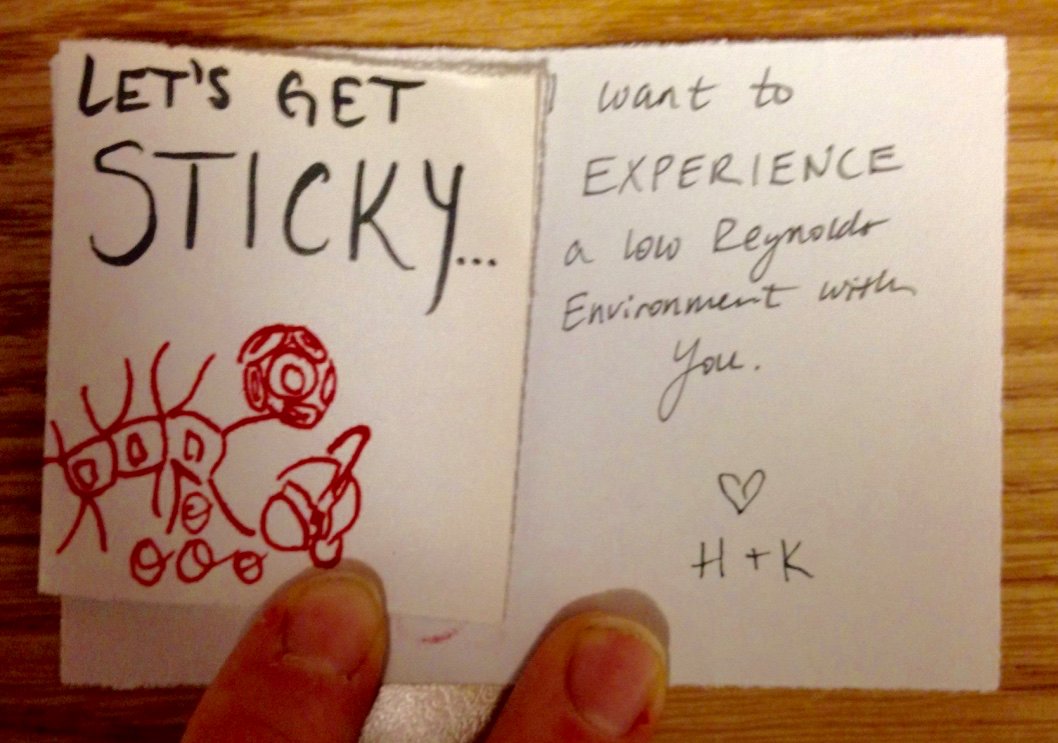 LET'S GET
STICKY...
I want to
EXPERIENCE
a low Reynolds
Environment with
You.
H + K